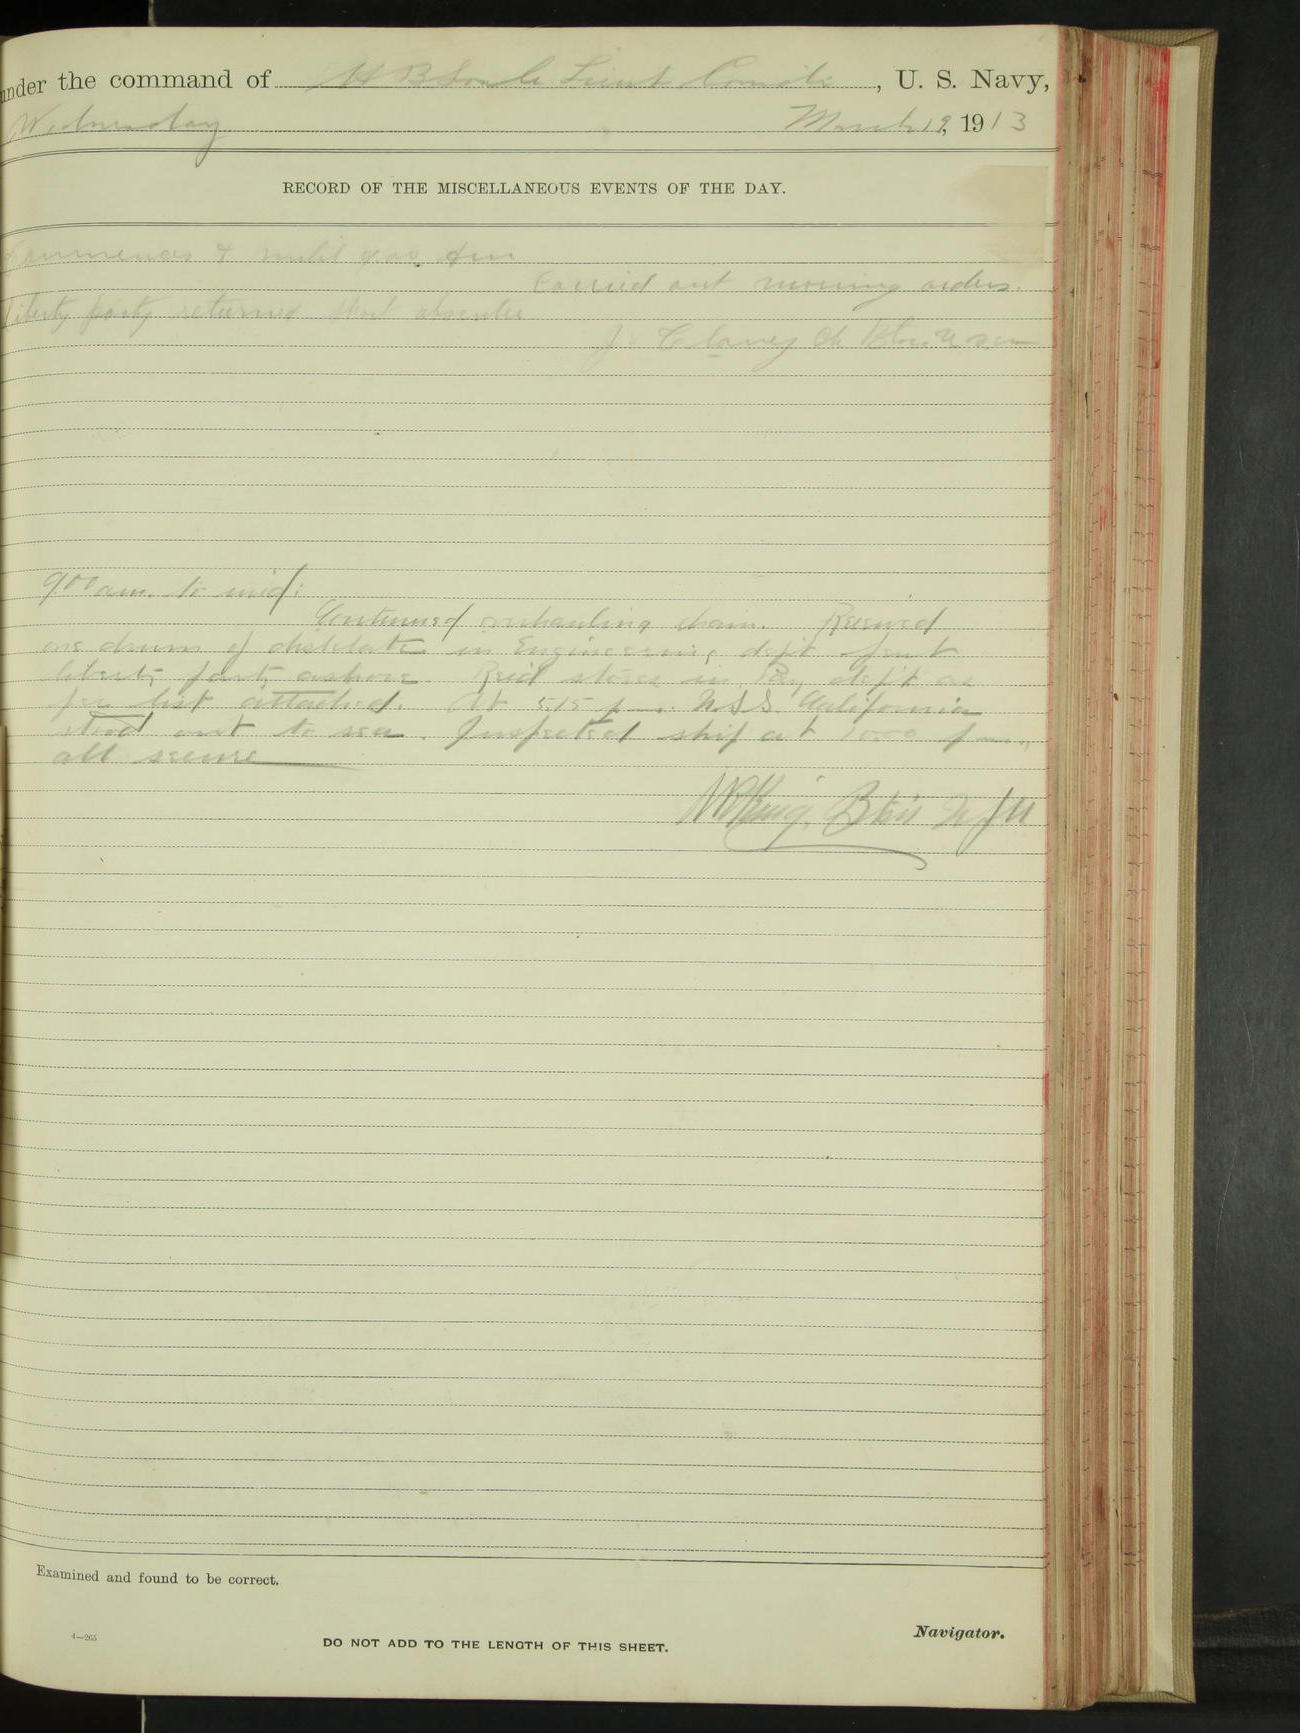 under the command of H B Soule Lieut Comdr, U. S. Navy,
Wednesday March 19, 1913
RECORD OF THE MISCELLANEOUS EVENTS OF THE DAY.
Commences & until 9.00 Am
Carried out morning orders.
Liberty party returned absentee
J. Clancy Ch Btsn. U.S.N
9 00 am. to mid:
Continued overhauling chain. Received
one drum of distilate in Engineering dept. Sent
liberty party ashore. Rec'd stores in Pay dep't as
per list attached. At 5:15 p.m. U.S.S. California
stood out to sea. Inspected ship at 10.00 pm.,
all secure
King, Btsn U.S.N
Examined and found to be correct.
4—265
DO NOT ADD TO THE LENGTH OF THIS SHEET.
Navigator.